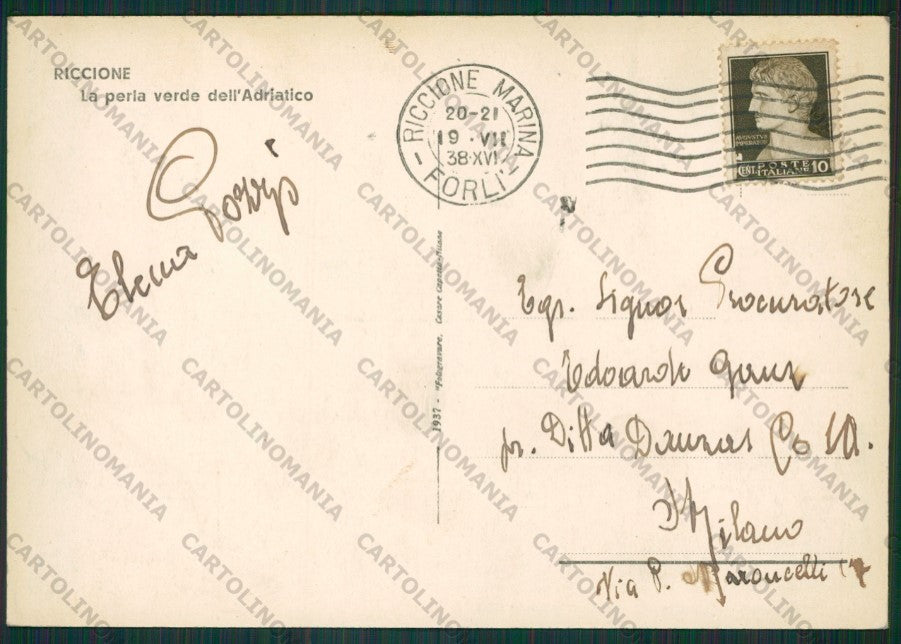 RICCIONE
La perla verde dell'Adriatico
Elena Gozzi
RICCIONE MARINA
20-21
19·VII
38·XVI
FORLI'
AVGVSTVS
IMPERATOR
POSTE
CENT. ITALIANE 10
1937 - "Fotogravure, Cesare Capello-Milano
Egr. Signor Procuratore
Edoardo
pr. Ditta Co SA.
Milano
Via P. Maroncelli
CARTOLINOMANIA